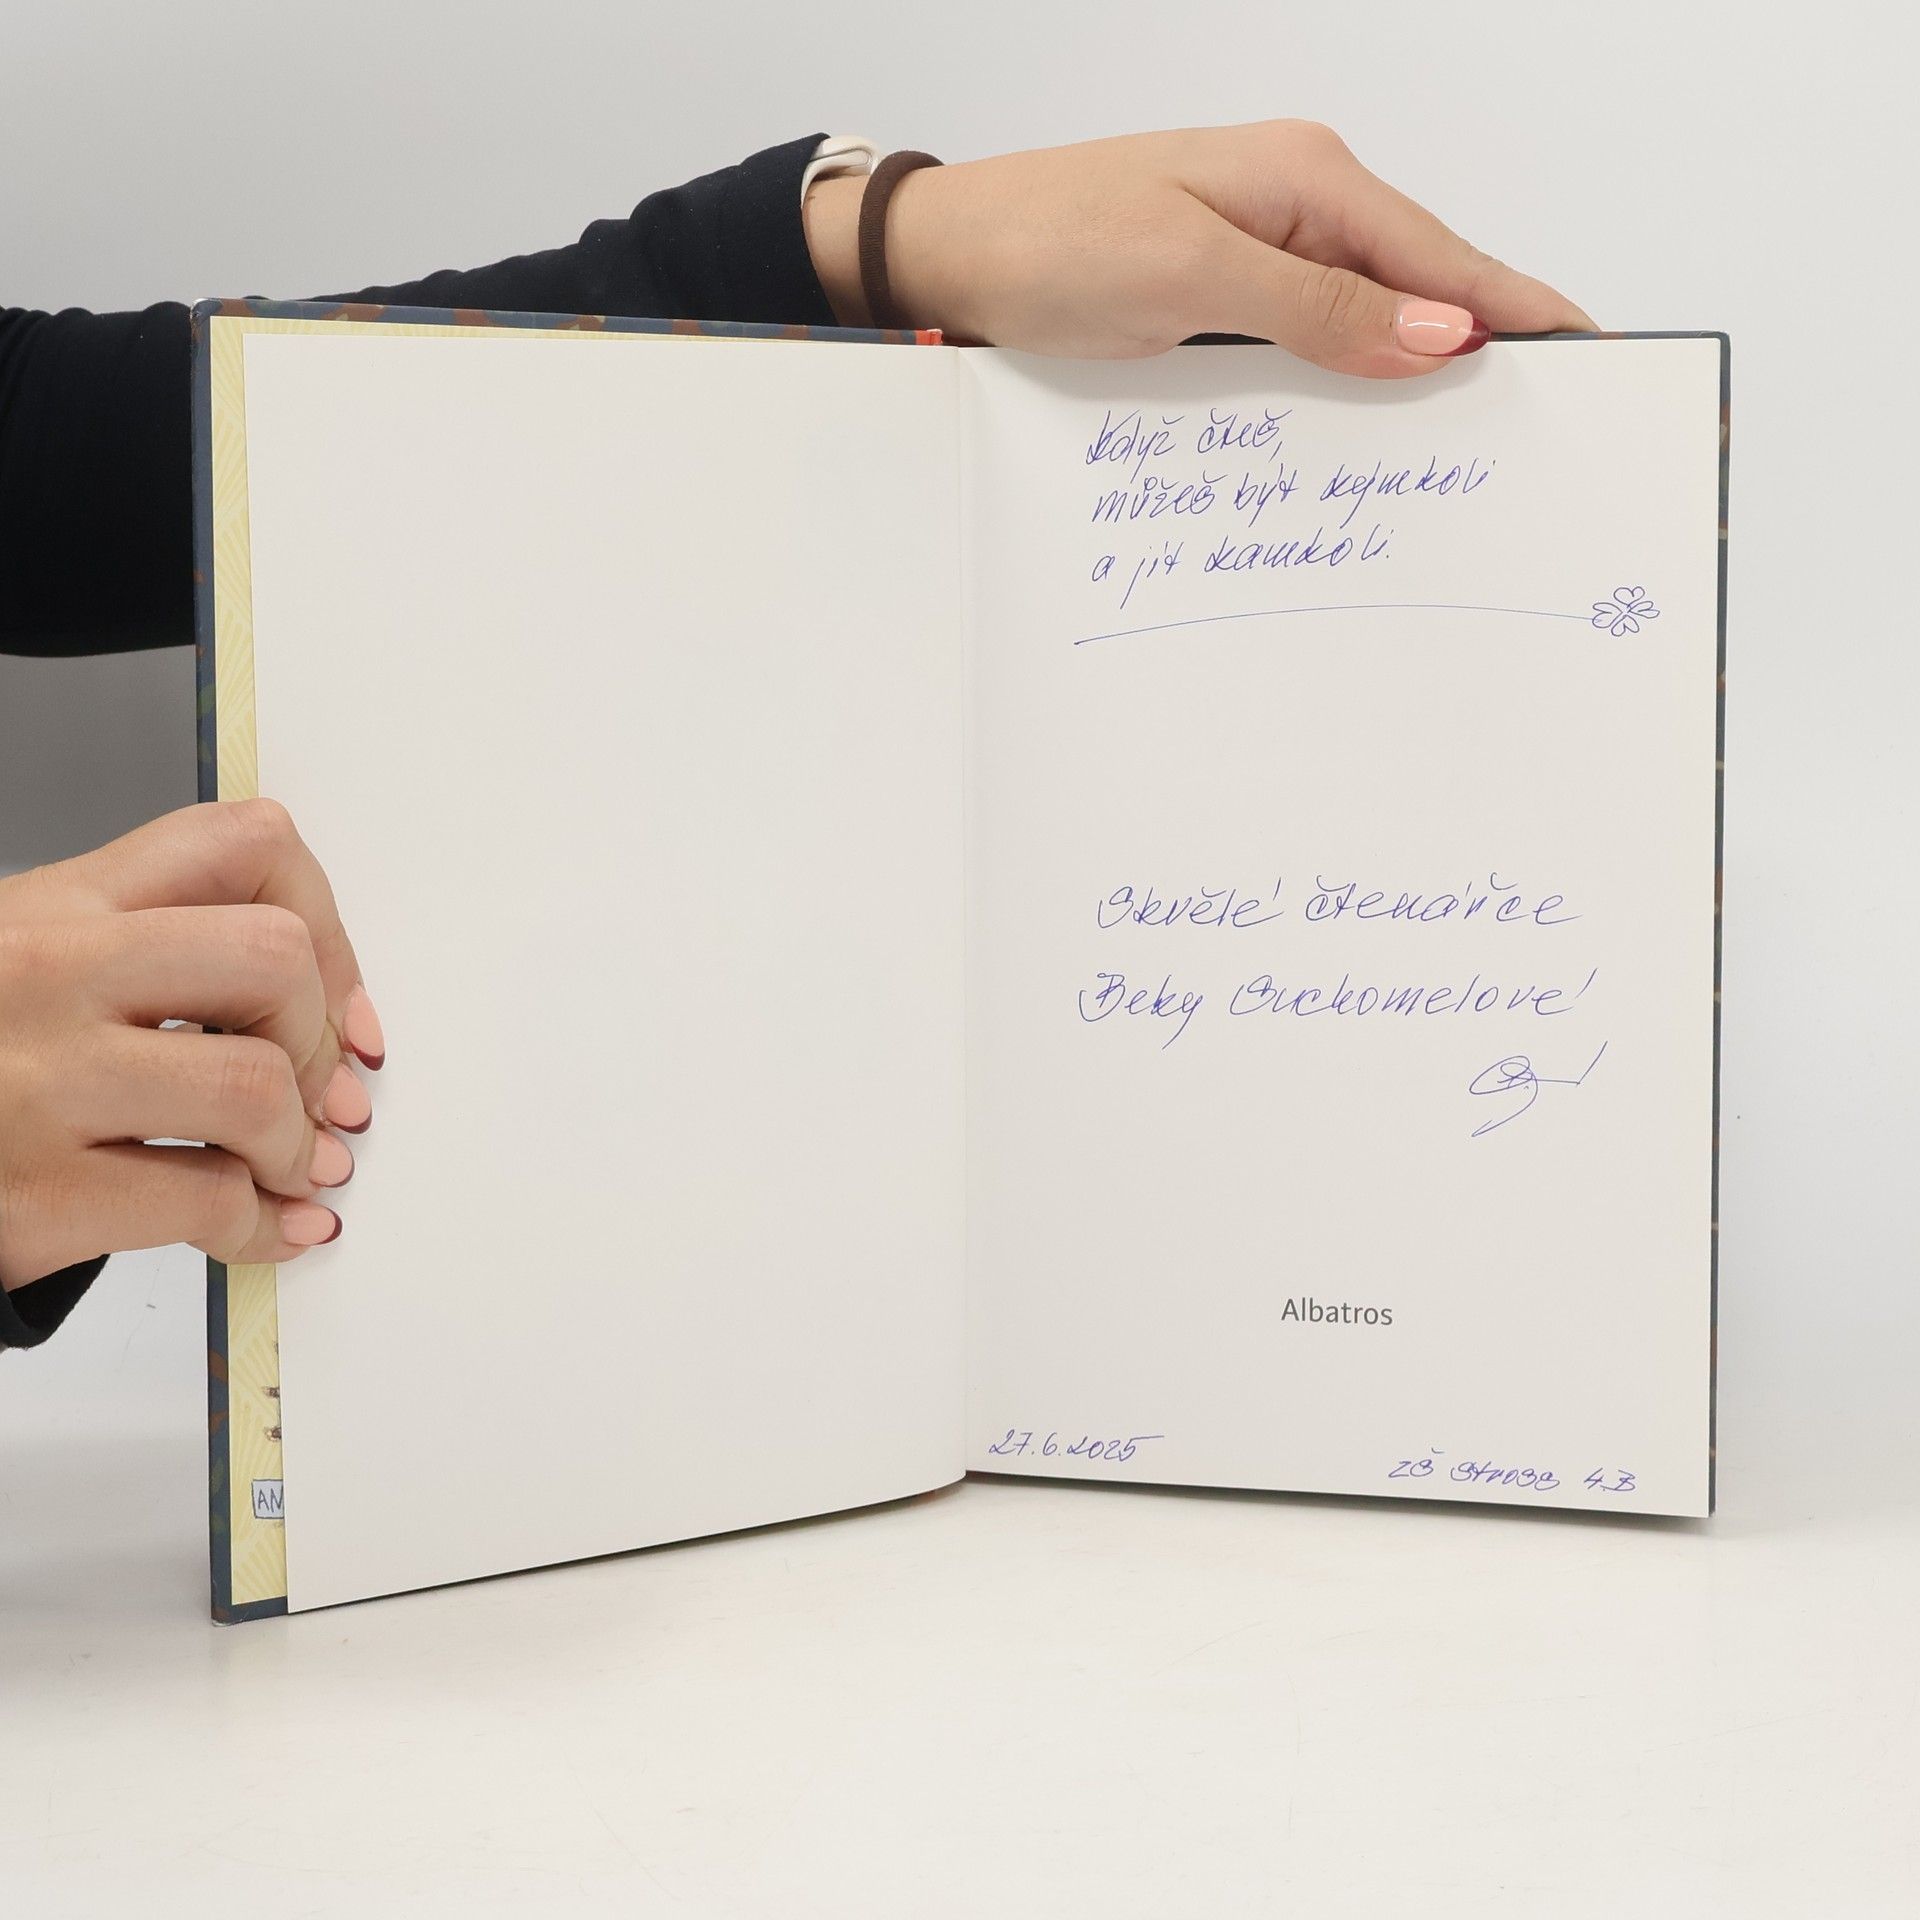 Když čteš,
můžeš být kýmkoli
a jít kamkoli.
Skvělé čtenářce
Beky Suchomelové
Albatros
27.6.2025
ZŠ Stross 4.B
AN